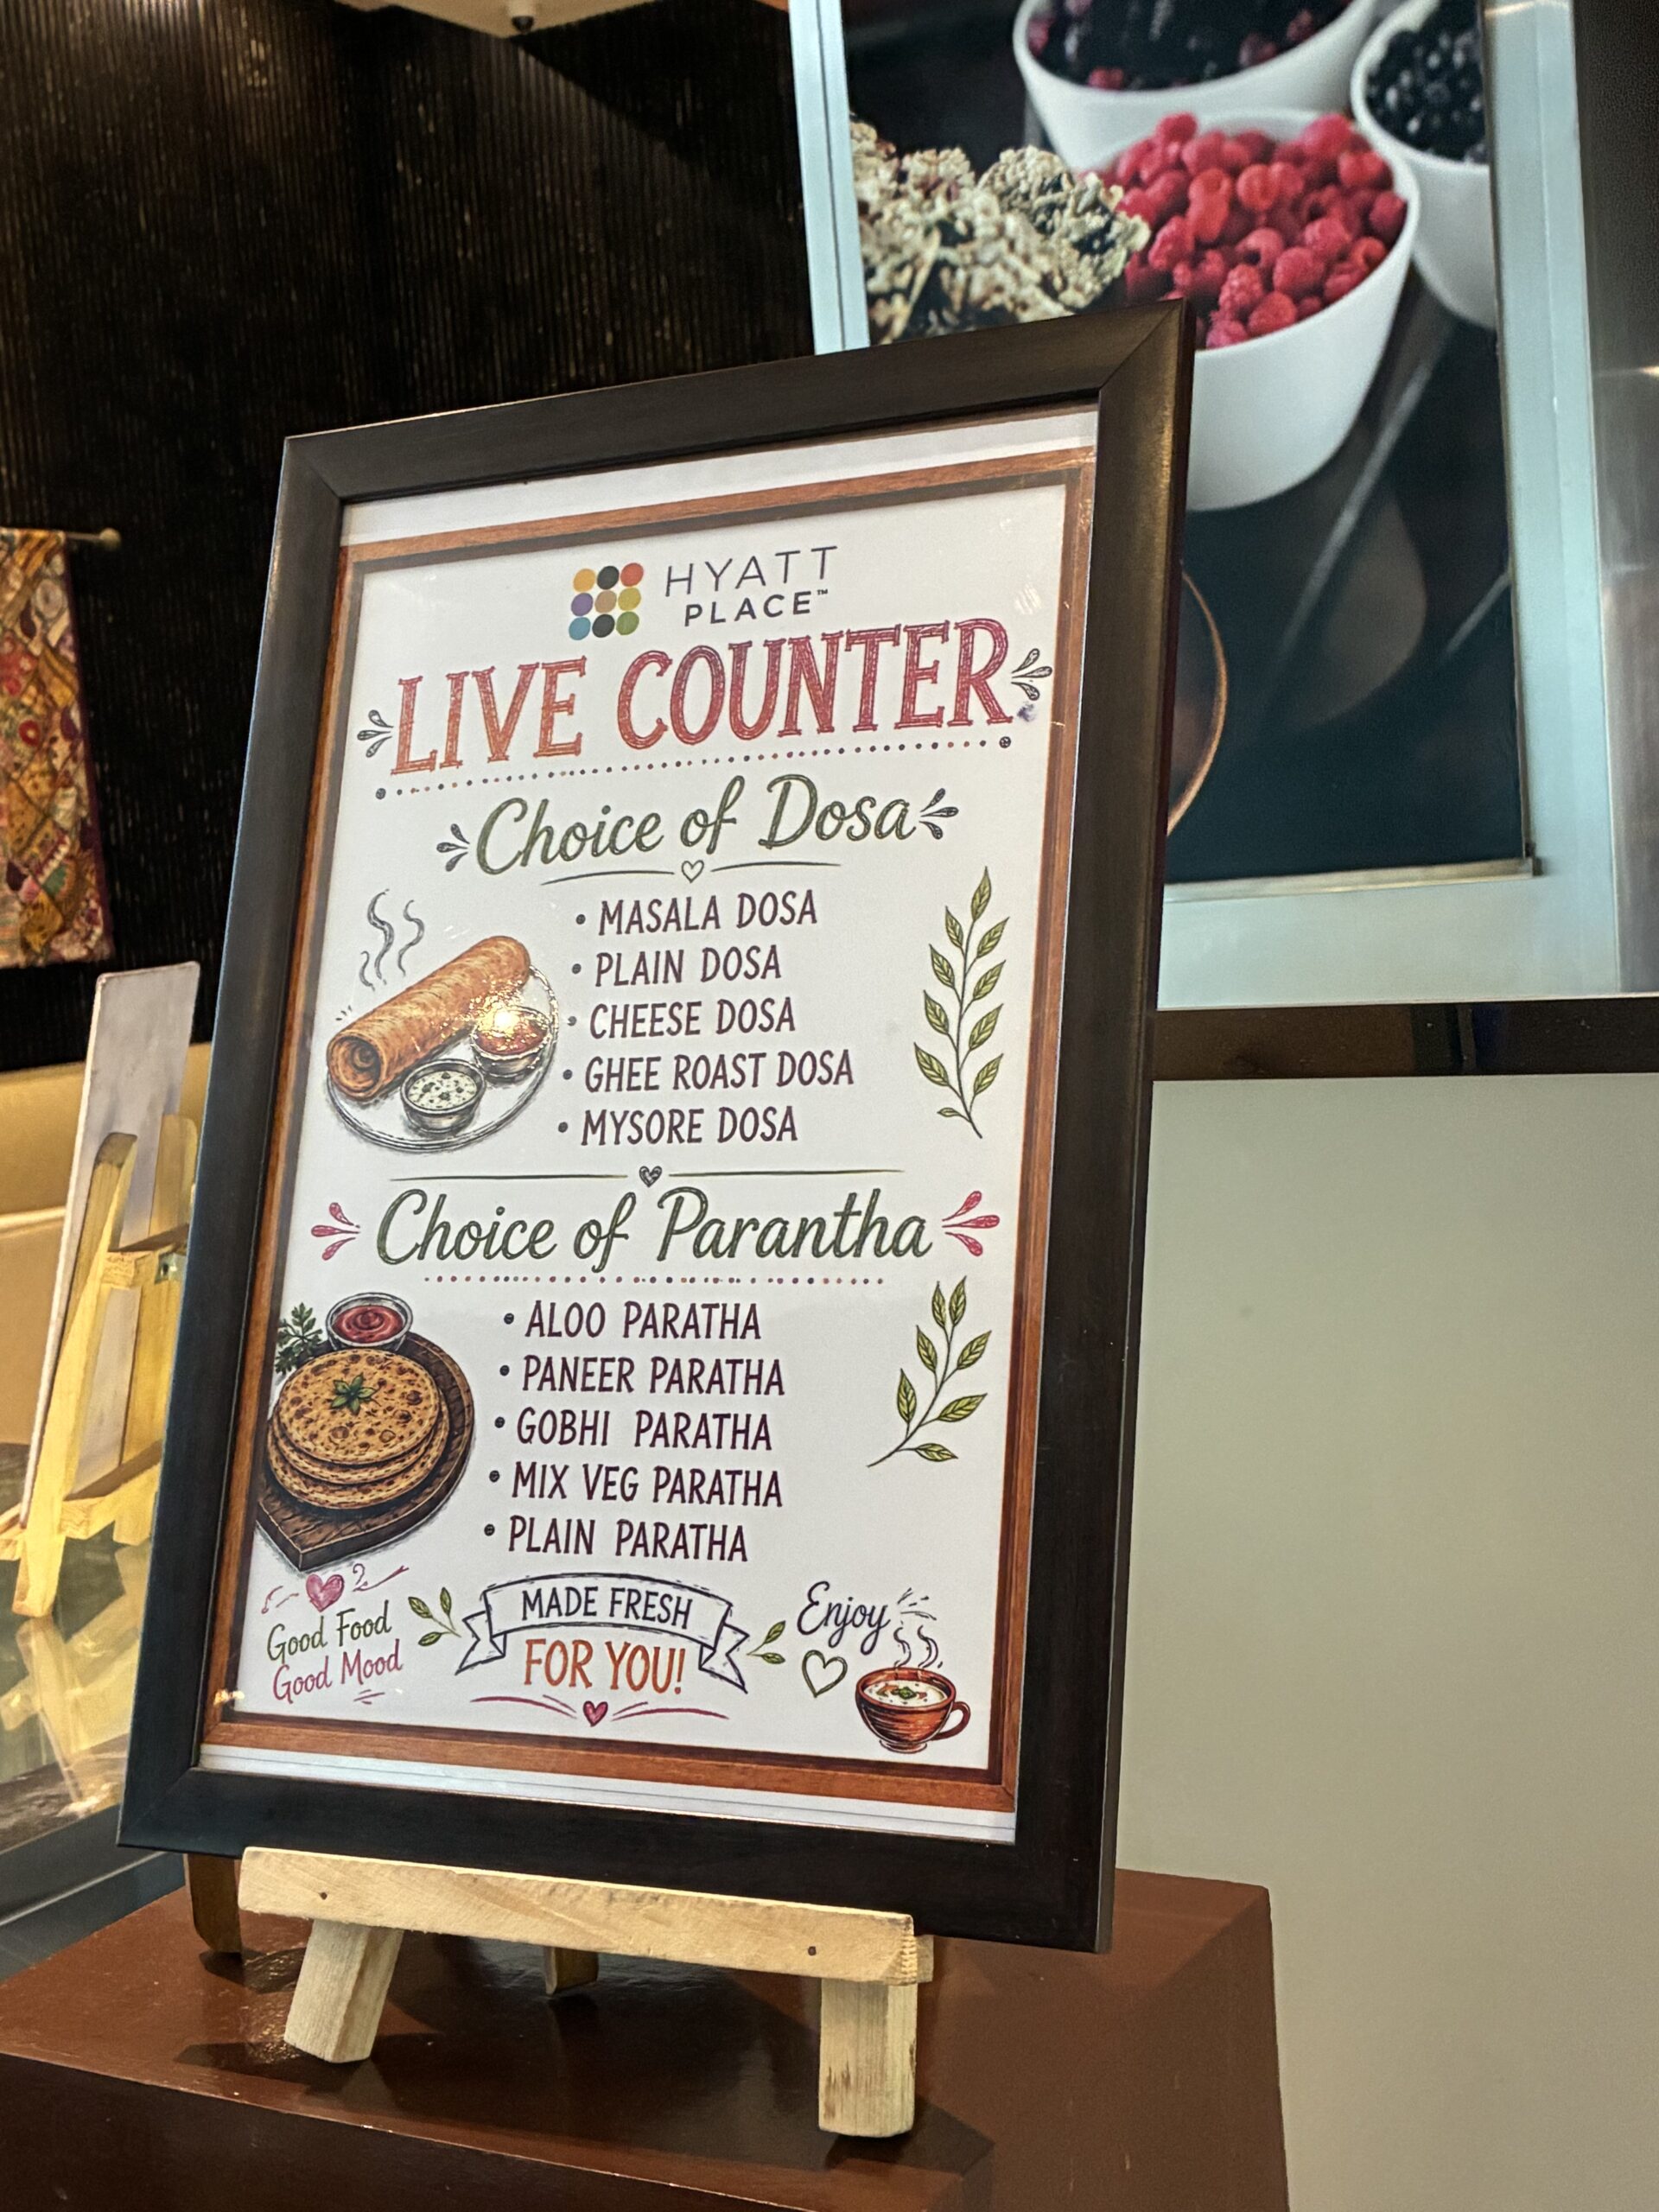 HYATT
PLACE™
LIVE COUNTER
Choice of Dosa
• MASALA DOSA
• PLAIN DOSA
• CHEESE DOSA
• GHEE ROAST DOSA
• MYSORE DOSA
Choice of Parantha
• ALOO PARATHA
• PANEER PARATHA
• GOBHI PARATHA
• MIX VEG PARATHA
• PLAIN PARATHA
Good Food
Good Mood
MADE FRESH
FOR YOU!
Enjoy